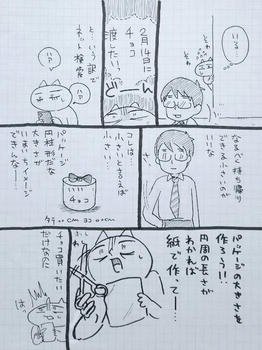 いる…
そわ
そわ
2月14日に
チョコ
渡したい。
ど
ん
と、いう訳で
ネット検索
ハァ
ハァ
なるべく持ち帰り
できる小さいのが
いいな
コレは…
小さいと言えば
小さい…
さい…
パッケージ
円柱形だな
大きさが
いまいちイメージ
できんなー
チョコ
タテ○○cm ヨコ○○cm
パッケージの大きさを
作ろう!!
円周の長さが
わかれば
紙で作って…
チョコ買いたい
だけなのに
はっ